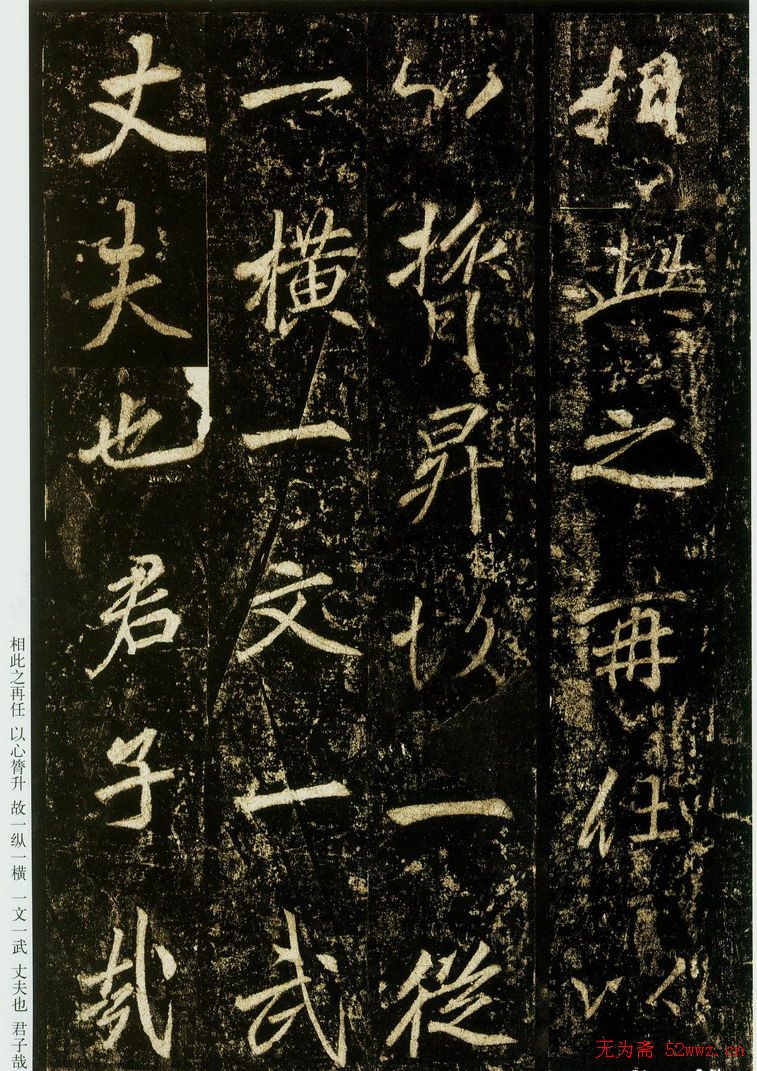 相此之再任以
心膂昇故一從
一橫一文一武
丈夫也君子哉
相此之再任 以心膂升 故一纵一横 一文一武 丈夫也 君子哉
无为斋 52wwz.cn